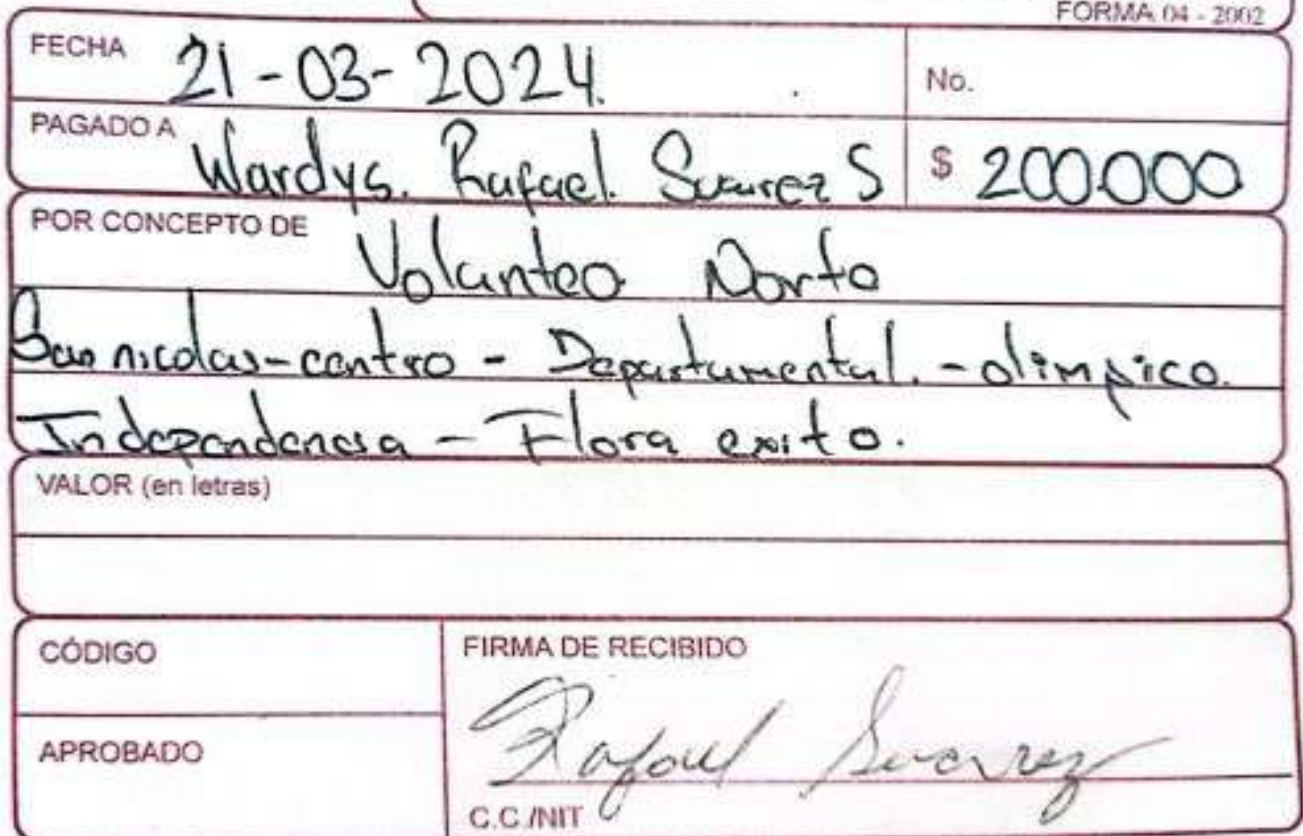 FORMA 04 - 2002
FECHA 21-03-2024.
No.
PAGADO A Wardys. Rafael. Suarez S
$ 200.000
POR CONCEPTO DE Volanteo Norte
San nicolas-centro - Departamental. - olimpico.
Independencia - Flora exito.
VALOR (en letras)
CÓDIGO
FIRMA DE RECIBIDO
Rafael Suarez
APROBADO
C.C./NIT